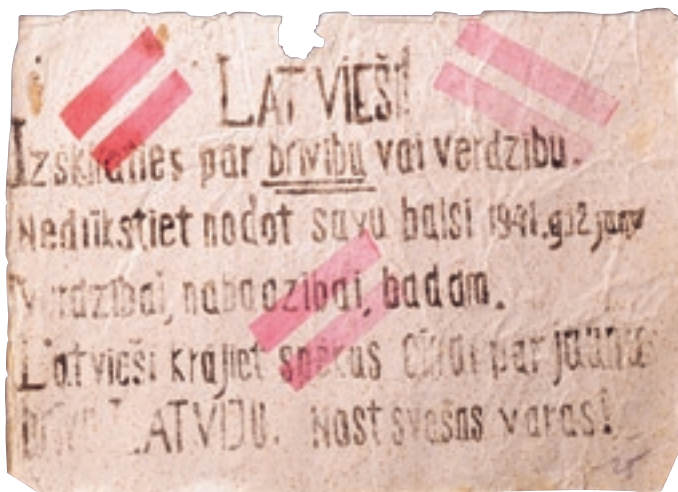 LATVIEŠI!
Izšķiraties par brīvību vai verdzību.
Nedrīkstiet nodot savu balsi 1941.g.12 janv
Verdzībai, nabadzībai, badam.
Latvieši krājiet spēkus cīņai par jaunu
brīvu LATVIJU. Nost svešas varas!
25